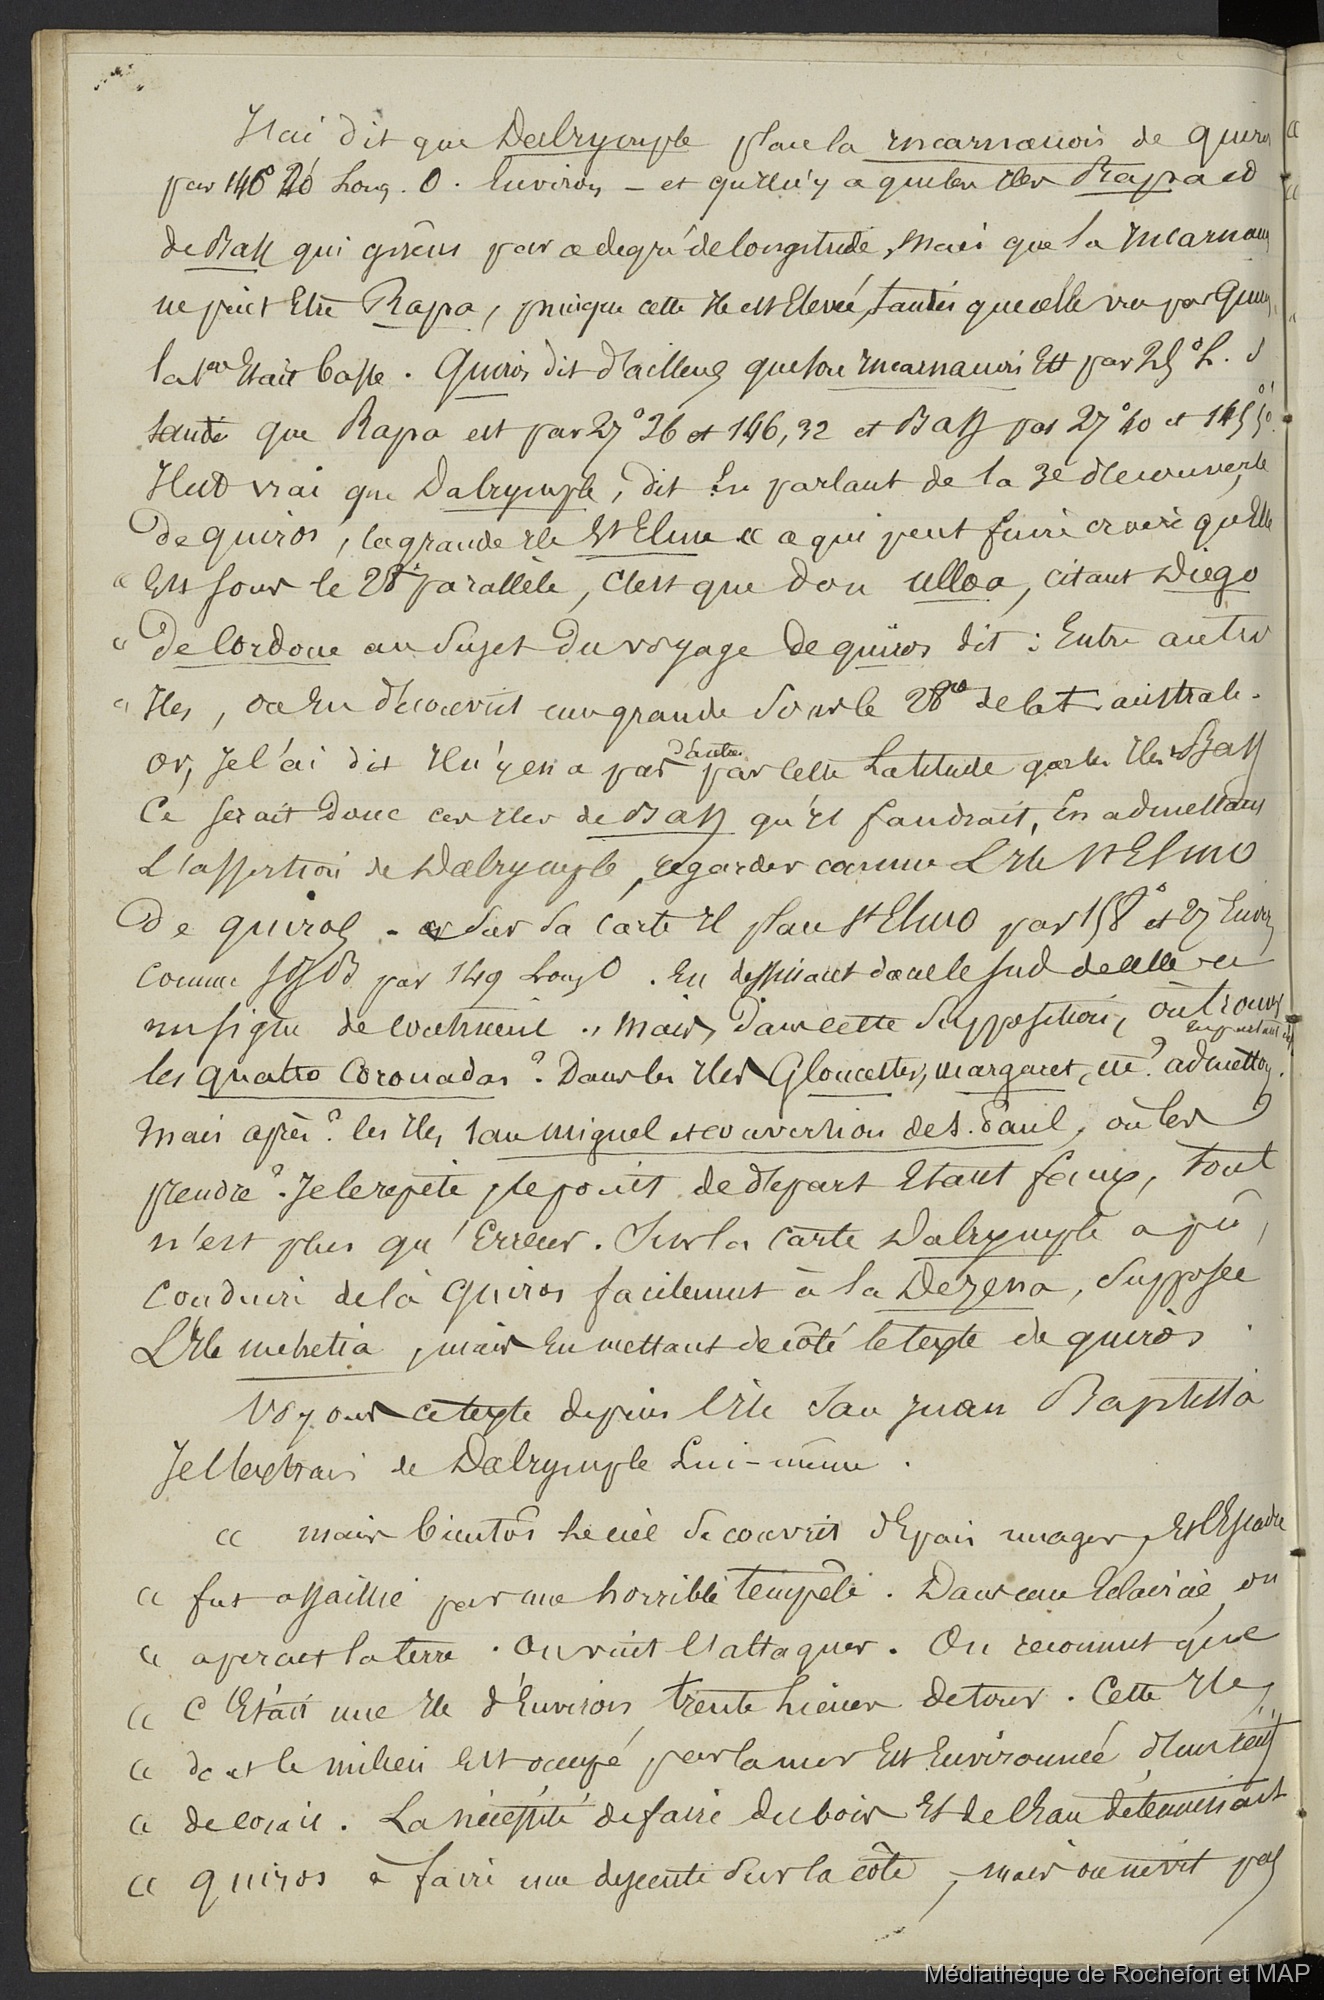 J'ai dit que Dalrymple place la incarnacion de quiros
par 146° 20' Long. O. Environ – et qu'il n'y a que les iles Rapa et
de Bass qui gisent par ce degré de longitude, mais que la incarnacion
ne peut Etre Rapa, puisque cette ile est Elevée, tandis que celle vue par Quiros
la 1ere Etait basse. Quiros dit d'ailleurs que son incarnacion Est par 25° L. S
tandis que Rapa est par 27° 36 et 146, 32 et Bass par 27° 40 et 145° 50'.
Il est vrai que Dalrymple, dit En parlant de la 3e découverte
De quiros, la grande ile St Elme « ce qui peut faire croire qu'elle
« Est sous le 28° parallèle, C'est que Don Ulloa, citant Diego
« De Cordoue au sujet Du voyage de quiros dit : Entre autres
« Iles, on En découvrit une grande sous le 28me de lat. australe.
or, Je l'ai dit il n'y en a pas d'autres par cette Latitude que les Iles Bass
Ce serait Donc ces iles de Bass qu'il faudrait, En admettant
L'assertion de Dalrymple, regarder comme L'ile St Elmo
De quiros – or sur sa carte il place St Elmo par 158° et 27 Environ
comme par 149 Long O. En dessinant dans le sud de celle-ci
un signe de continent. Mais, Dans cette supposition, où trouver
les quatro Coronadas ? Dans les iles Gloucester, margaret, etc ? admettons.
En partant
Mais après ? les Iles san Miguel et conversion de S. Paul, où les
prendre ? Je le repète, le point de départ Etant faux, Tout
n'est plus qu'Erreur. Sur la carte Dalrymple a pû,
Conduire de là Quiros facilement à la Dezena, supposée
L'Ile mehetia, mais En mettant de côté le texte de quiros.
Voyons ce texte depuis l'ile San Juan Baptista
Je l'extrais de Dalrymple Lui-même.
« mais bientôt le ciel se couvrit d'épais nuages, Et l'Escadre
« fut assaillie par une horrible tempête. Dans une Eclaircie, on
« aperçut la terre. On vint l'attaquer. On reconnut que
« C'Etait une Ile d'Environ trente Lieues de tour. Cette Ile,
« dont le milieu Est occupé par la mer Est Environnée d'un récif
« de corail. La nécessité de faire du bois Et de l'Eau déterminait
« quiros à faire une descente sur la côte, – mais on ne vit pas
Médiathèque de Rochefort et MAP